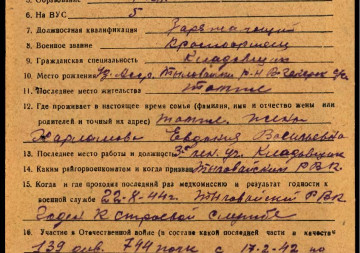 6. На ВУС 5
7. Должностная квалификация Заряжающий
8. Военное звание Красноармеец
9. Гражданская специальность Кладовщик
10. Место рождения Удм. АССР, Тыловайский р-н
11. Последнее место жительства также
12. Где проживает в настоящее время семья (фамилия, имя и отчество жены или
родителей и точный их адрес) также, жена
Харламова Евдокия Васильевна
13. Последнее место работы и должность Кладовщик
14. Каким райгорвоенкоматом и когда призван Тыловайский РВК.
15. Когда и где проходил последний раз медкомиссию и результат годности к
военной службе 22-8-44г. Тыловайский РВК
Годен к строевой службе
16. Участие в Отечественной войне (в составе какой последней части и качестве
139 див. 744 полк с 17-2-42 по